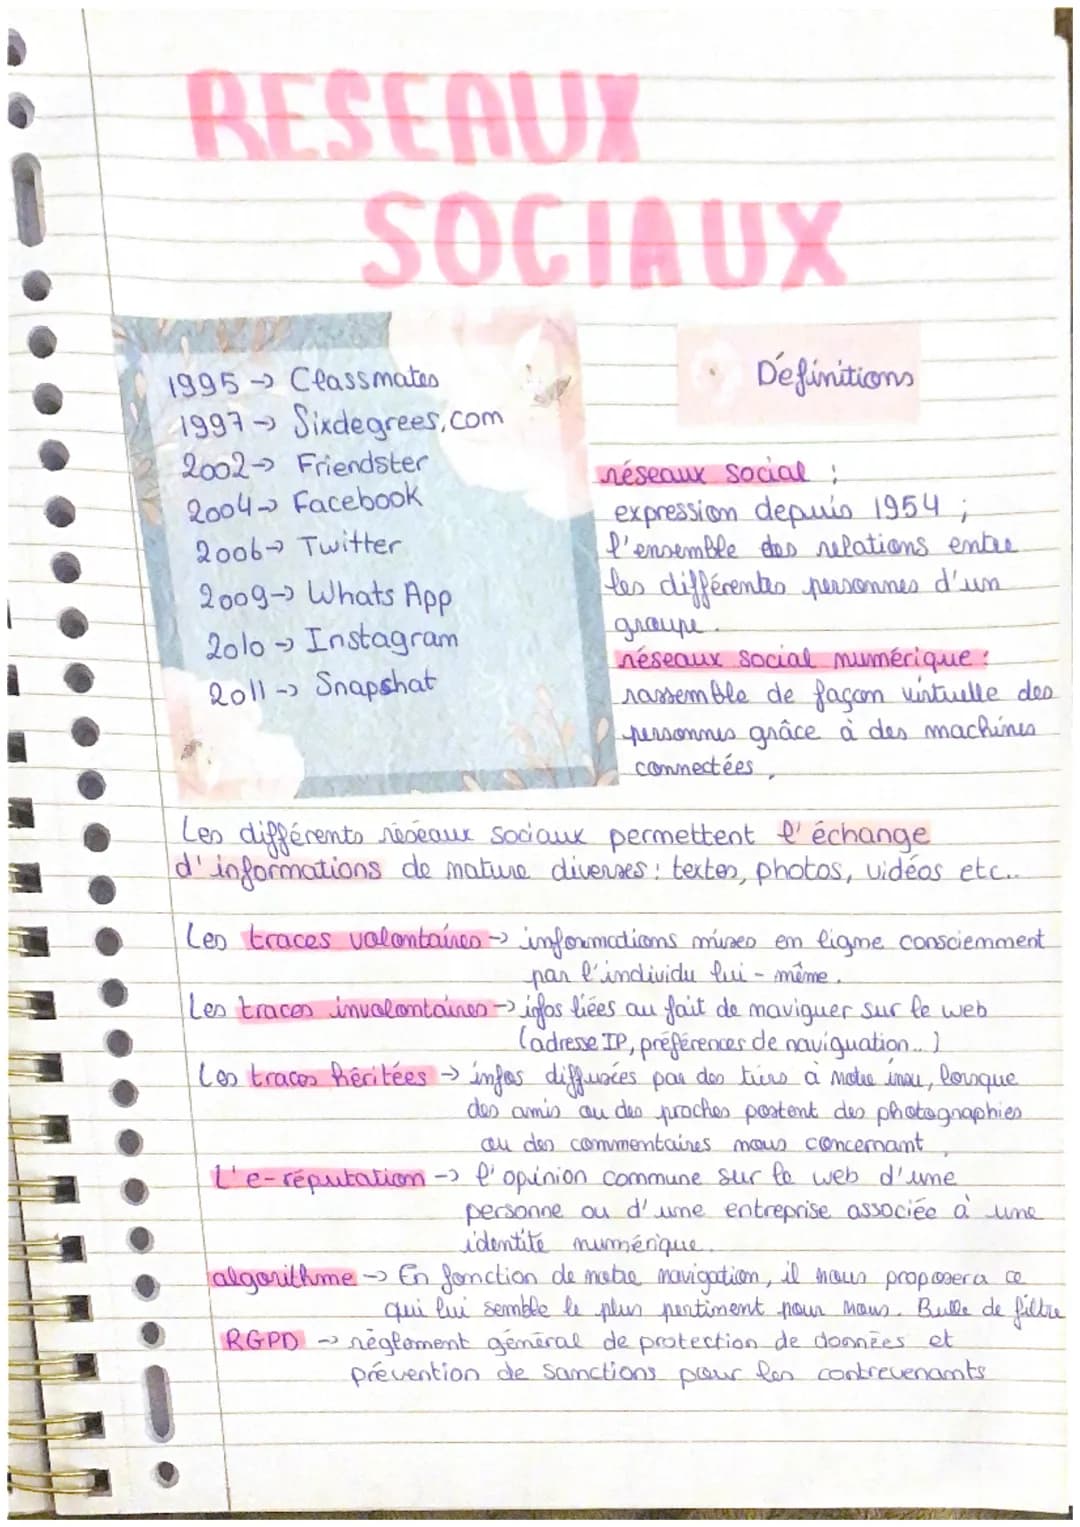 RESEAUX
SOCIAUX
1995 → Classmates
1997 → Sixdegrees.com
2002 → Friendster
2004 → Facebook
2006 → Twitter
2009 → Whats App
2010 → Instagram
2011 → Snapshat
Définitions
réseaux social :
expression depuis 1954 ;
l'ensemble des relations entre
les différentes personnes d'un
groupe.
réseaux social numérique :
rassemble de façon virtuelle des
personnes grâce à des machines
connectées.
Les différents réseaux sociaux permettent l'échange
d'informations de nature diverses : textes, photos, vidéos etc...
Les traces volontaires → informations mises en ligne consciemment
par l'individu lui-même.
Les traces involontaires → infos liées au fait de naviguer sur le web
(adresse IP, préférences de naviguation...)
Les traces héritées → infos diffusées par des tiers à notre insu, lorsque
des amis ou des proches postent des photographies
ou des commentaires nous concernant.
L'e-réputation → l'opinion commune sur le web d'une
personne ou d'une entreprise associée à une
identité numérique.
algorithme → En fonction de notre navigation, il nous proposera ce
qui lui semble le plus pentiment pour nous. Bulle de filtre
RGPD → règlement général de protection de données et
prévention de sanctions pour les contrevenants